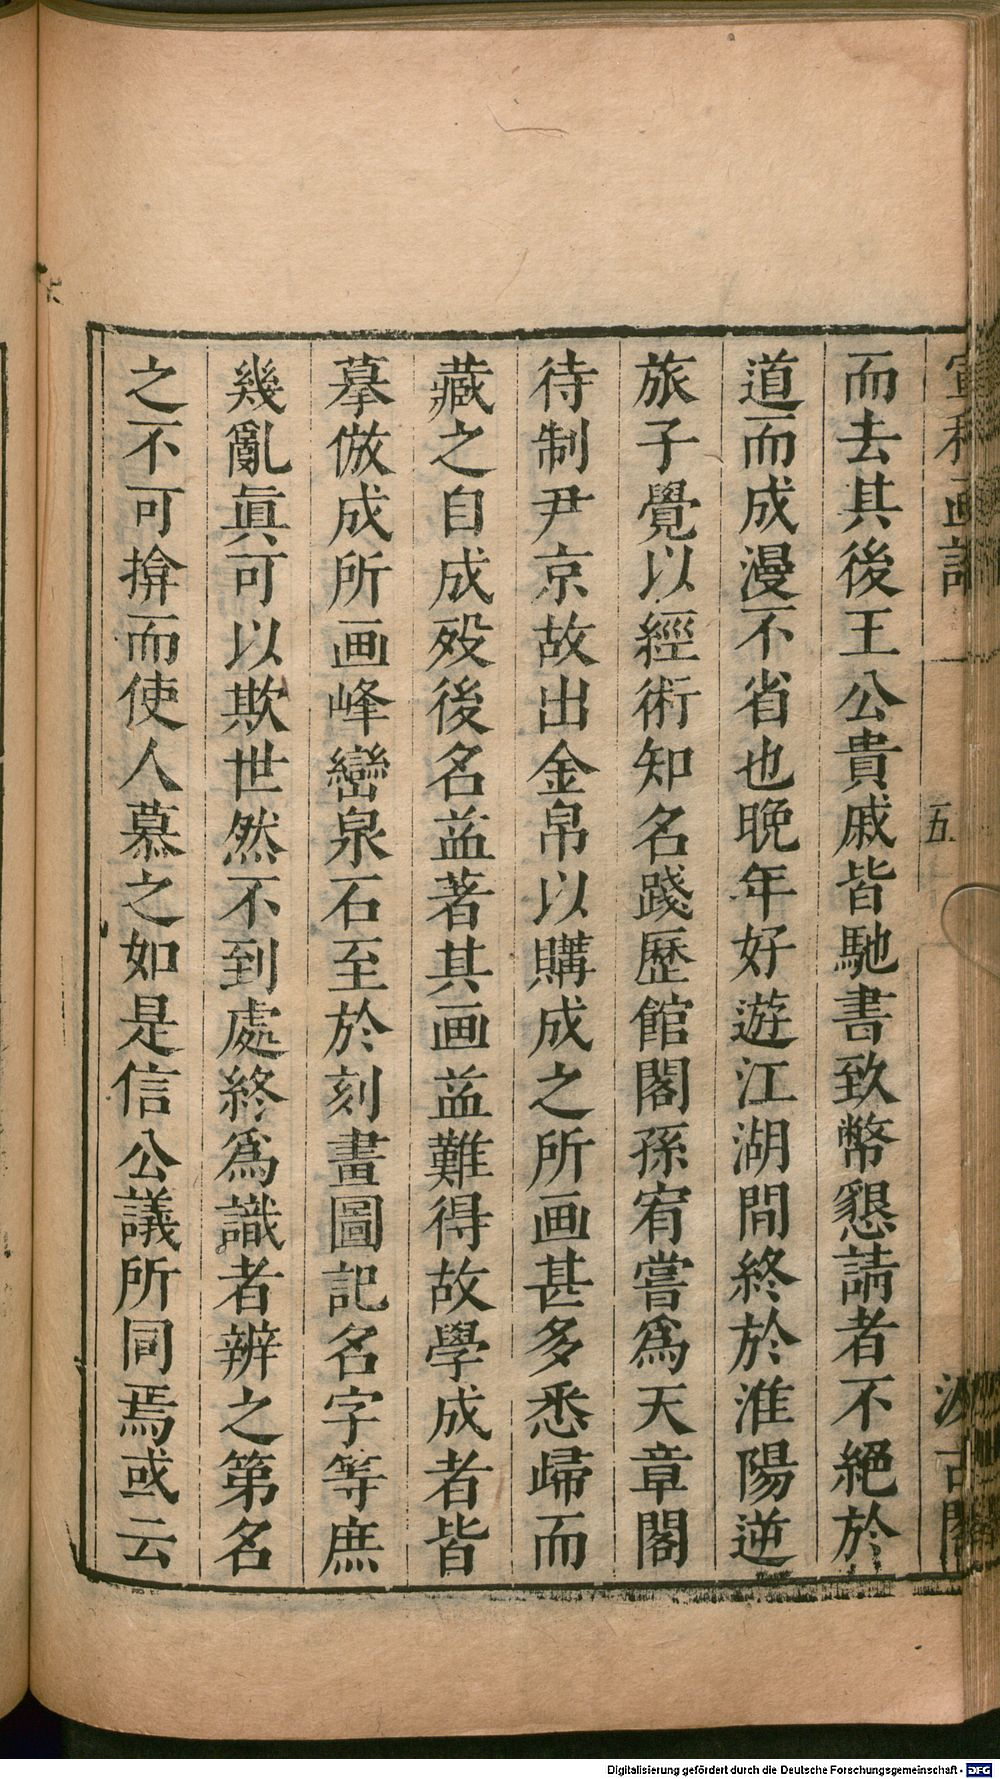 宣和画譜
五
汲古閣
而去其後王公貴戚皆馳書致幣懇請者不絕於
道而成漫不省也晚年好遊江湖間終於淮陽逆
旅子覺以經術知名踐歷館閣孫宥嘗爲天章閣
待制尹京故出金帛以購成之所画甚多悉歸而
藏之自成歿後名益著其画益難得故學成者皆
摹倣成所画峰巒泉石至於刻畫圖記名字等庶
幾亂眞可以欺世然不到處終爲識者辨之第名
之不可揜而使人慕之如是信公議所同焉或云
Digitalisierung gefördert durch die Deutsche Forschungsgemeinschaft - DFG